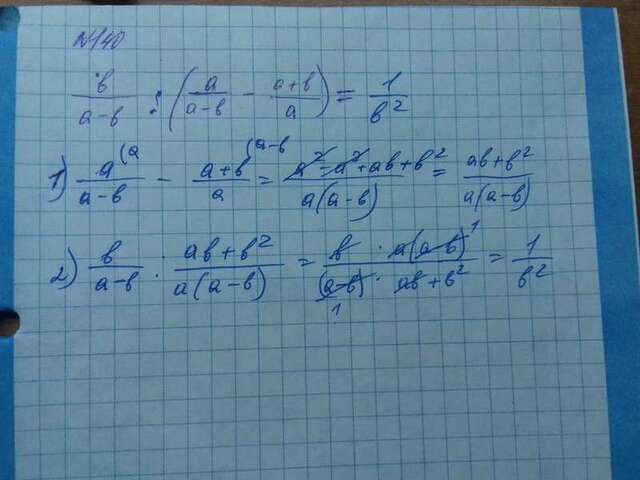 №140
b/(a-b) : (a/(a-b) - (a+b)/a) = 1/b²
1) a(a/(a-b) - (a+b(a-b)/a = (a²-a²+ab+b²)/(a(a-b)) = (ab+b²)/(a(a-b))
2) b/(a-b) : (ab+b²)/(a(a-b)) = (b · a(a-b) 1)/((a-b) · ab+b²) = 1/b²
1